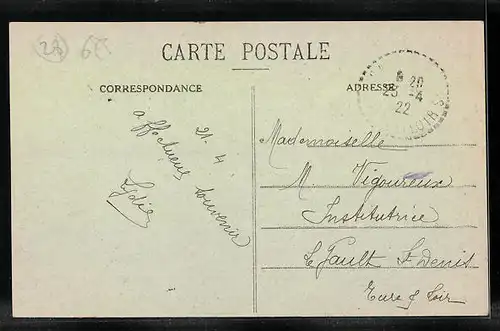 28
CARTE POSTALE
CORRESPONDANCE
ADRESSE
20
23 - 4
22
21 - 4
affectueux souvenir
Lydie
Mademoiselle
M. Vigoureux
Institutrice
Le Gault St Denis
Eure & Loir